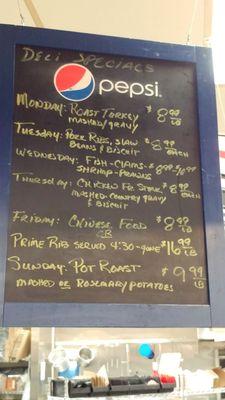 DELI SPECIALS
pepsi
MONDAY: ROAST TURKEY $8.99 LB
MASHED/GRAVY
TUESDAY: PORK RIBS, SLAW $8.99 EACH
BEANS & BISCUIT
WEDNESDAY: FISH-CLAMS-
SHRIMP-PRAWNS
THURSDAY: CHICKEN FR. STEAK $8.99 EACH
MASHED-COUNTRY GRAVY
& BISCUIT
FRIDAY: CHINESE FOOD $8.99 LB
PRIME RIB SERVED 4:30-GONE $16.99 LB
SUNDAY: POT ROAST $9.99 LB
MASHED OR ROSEMARY POTATOES